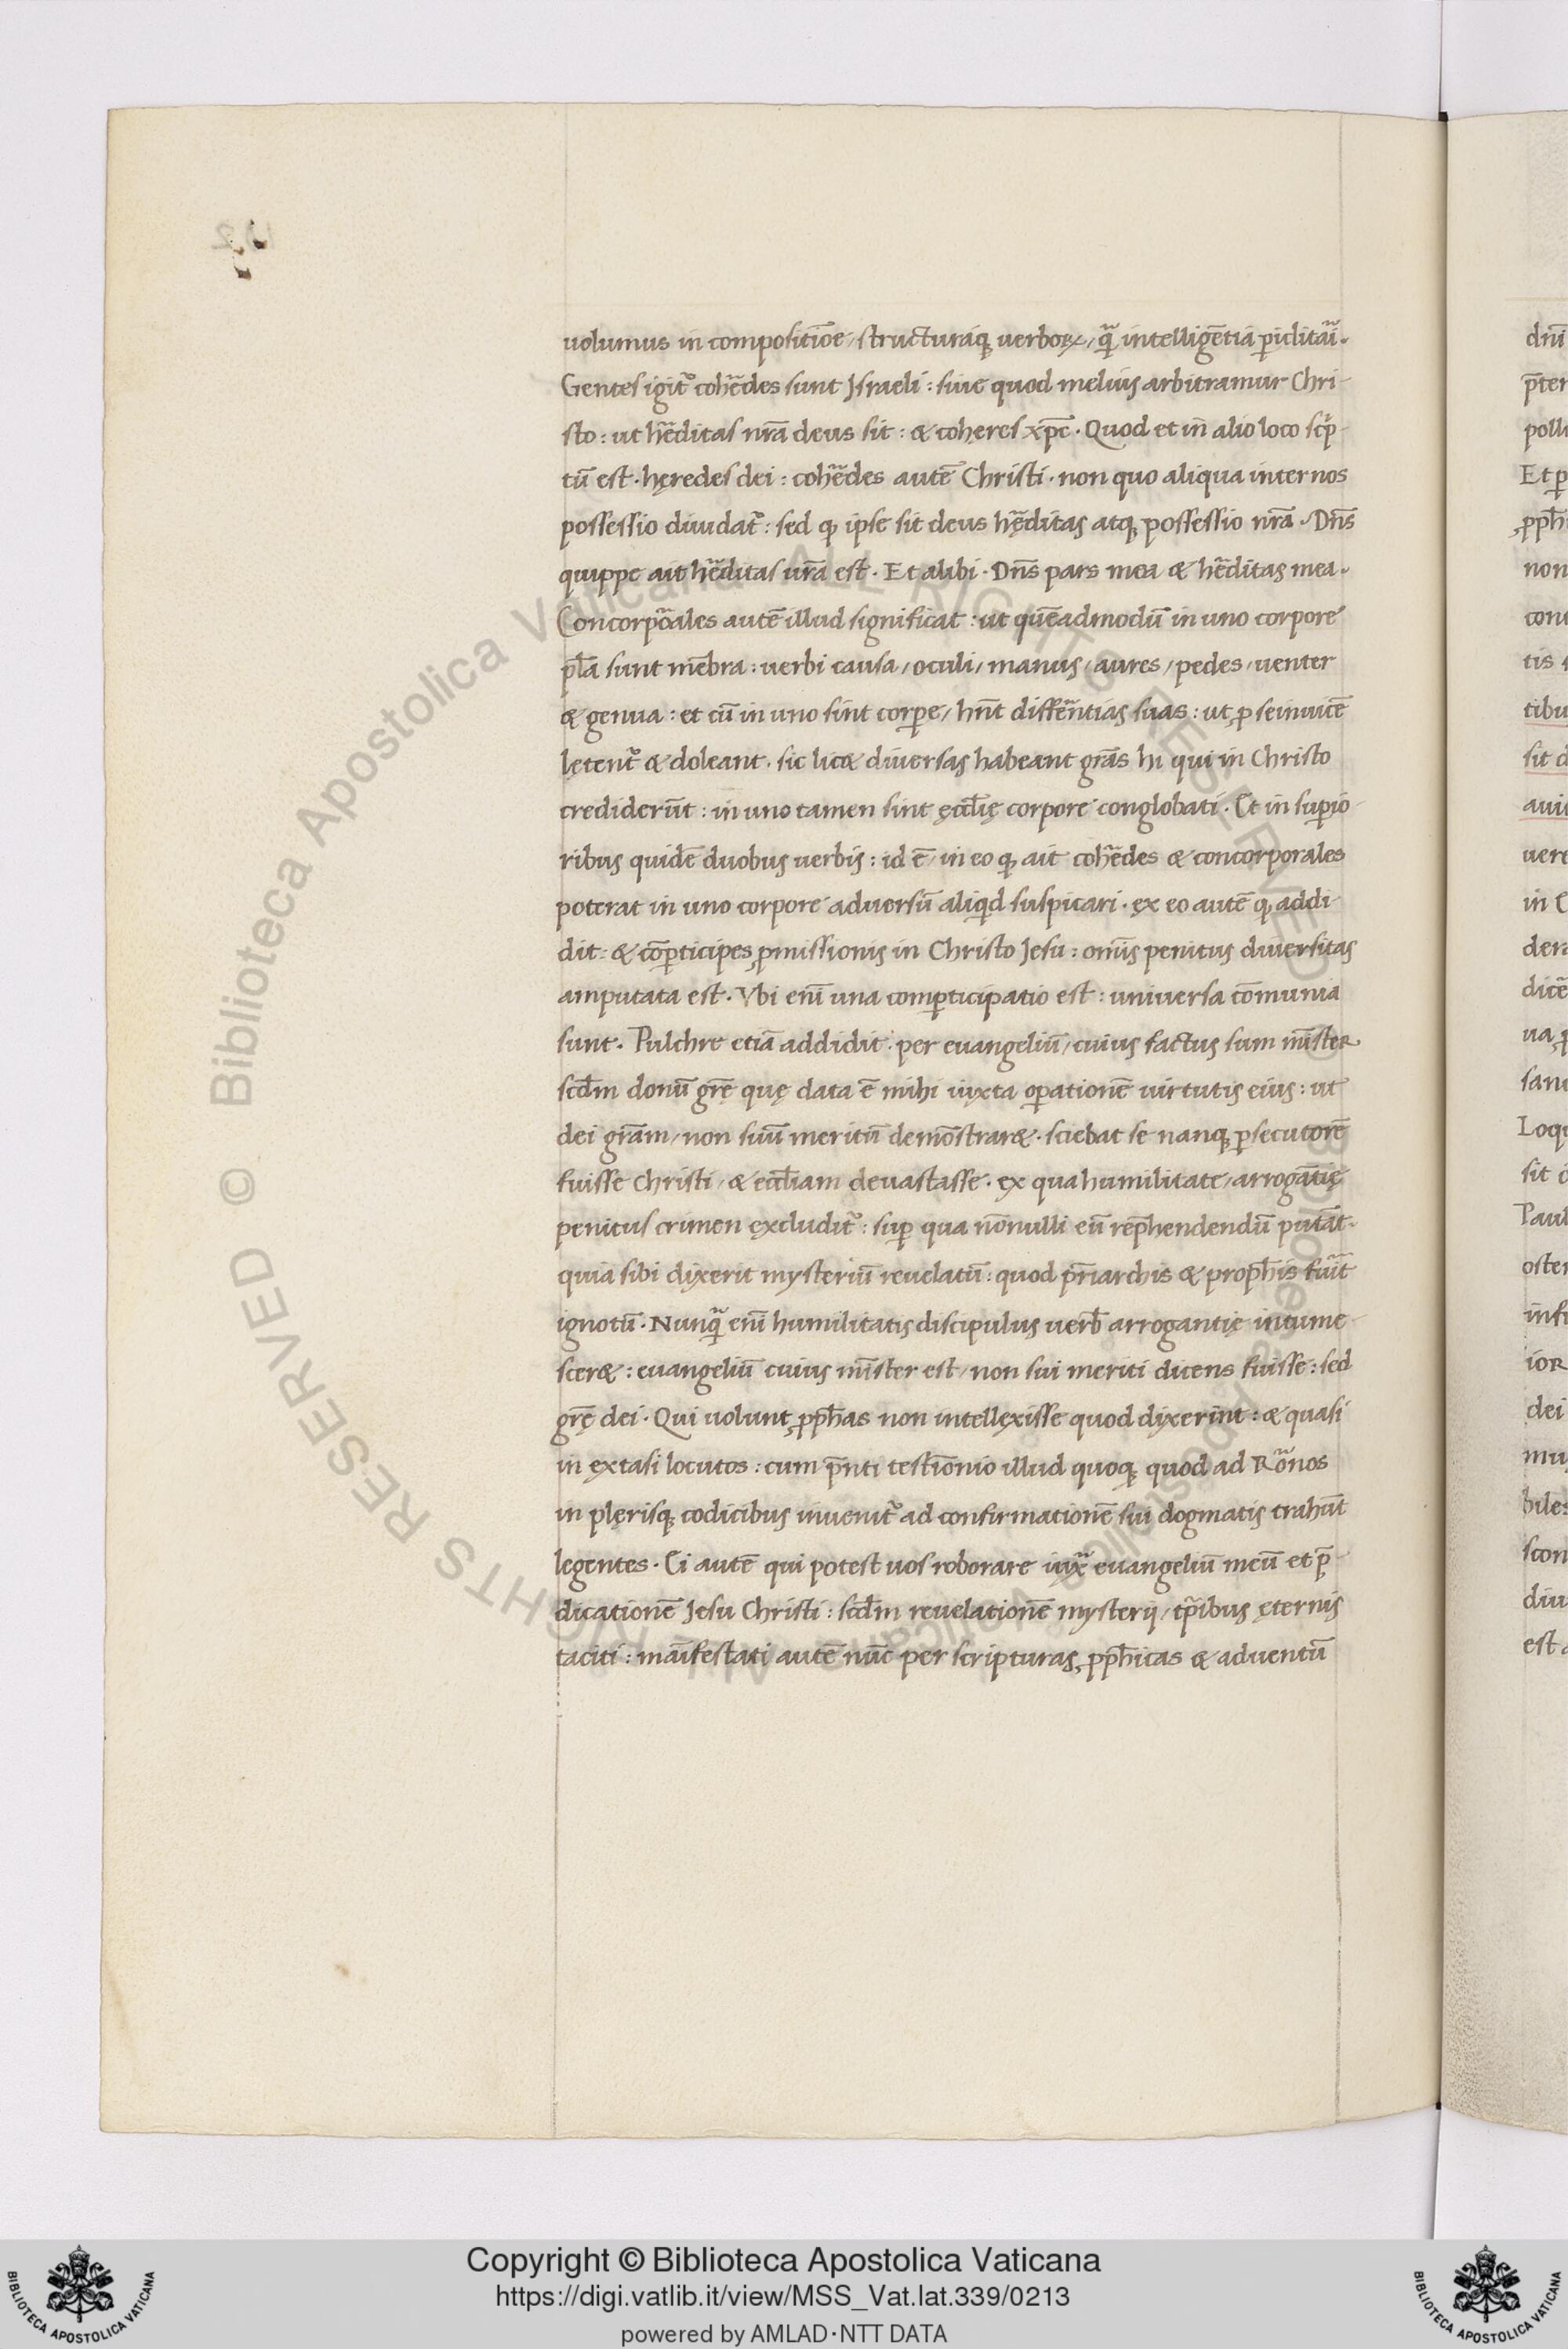 uolumus in compositiōe / structuraq; uerboꝝ / q̄ intelligētia ꝑiclitari.
Gentes igit᷑ coh̄edes sunt Israeli : siue quod melius arbitramur Chri-
sto : ut h̄editas nr̄a deus sit : & coheres xp̄c . Quod et in alio loco scp̄-
tū est . hęredes dei : coh̄edes autē Christi . non quo aliqua inter nos
possessio diuidat᷑ : sed q; ipse sit deus h̄ęditas atq; possessio nr̄a . Dn̄s
quippe ait h̄ęditas ur̄a est . Et alibi . Dn̄s pars mea & h̄editas mea .
Concorpōales autē illud significat : ut quēadmodū in uno corpore
pl̄a sunt mēbra : uerbi causa / oculi / manus / aures / pedes / uenter
& genua : et cū in uno sint corꝑe / hn̄t diffēntias suas : ut ꝓ se inuicē
lętent᷑ & doleant . sic lic& diuersas habeant grās hi qui in Christo
crediderūt : in uno tamen sint ęccl̄ię corpore conglobati . Et in suꝑio-
ribus quidē duobus uerbis : id ē / in eo q; ait coh̄edes & concorporales
poterat in uno corpore aduersū aliqd suspicari . ex eo autē q; addi-
dit : & cōꝑticipes ꝓmissionis in Christo Jesu : om̄is penitus diuersitas
amputata est . Vbi eni̅ una comꝑticipatio est : uniuersa cōmunia
sunt . Pulchre etiā addidit : per euangeliū / cuius factus sum mi̅ster
scd̄m donū grę̄ quę data ē mihi iuxta oꝑationē uirtutis eius : ut
dei grām / non suū meritū demōstrar& . sciebat se nanq; ꝑsecutorē
fuisse Christi / & eccl̄iam deuastasse . ex qua humilitate / arrogātię
penitus crimen excludit᷑ : suꝑ qua nōnulli eū rep̄hendendū putāt .
quia sibi dixerit mysteriū reuelatū : quod pr̄iarchis & proph̄is fuit
ignotū . Nunq̄ eni̅ humilitatis discipulus uerb̄ arrogantię intume-
scer& : euangeliū cuius mi̅ster est / non sui meriti dicens fuisse : sed
grę̄ dei . Qui uolunt ꝓph̄as non intellexisse quod dixerint : & quasi
in extasi locutos : cum p̄nti testiōnio illud quoq; quod ad Rōnos
in plęrisq; codicibus inuenit᷑ ad confirmationē sui dogmatis trahūt
legentes . Ei autē qui potest uos roborare iux̄ euangeliū meū et p̄-
dicationē Jesu Christi : scd̄m reuelationē mysterij / tp̄ibus ęternis
taciti : māifestati autē nūc per scripturas ꝓph̄icas & aduentū
dn̄i
p̄ter
poll
Et ꝑ
ꝓph̄
non
tis
tibu
sit d
uere
in C
dera
dicē
sanc
Loqu
sit
Paul
oste
dei
bile
est
© Biblioteca Apostolica Vaticana ALL RIGHTS RESERVED
Copyright © Biblioteca Apostolica Vaticana
https://digi.vatlib.it/view/MSS_Vat.lat.339/0213
powered by AMLAD·NTT DATA
BIBLIOTECA APOSTOLICA VATICANA
BIBLIOTECA APOSTOLICA VATICANA